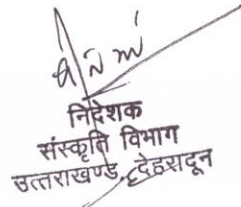 निदेशक
संस्कृति विभाग
उत्तराखण्ड, देहरादून